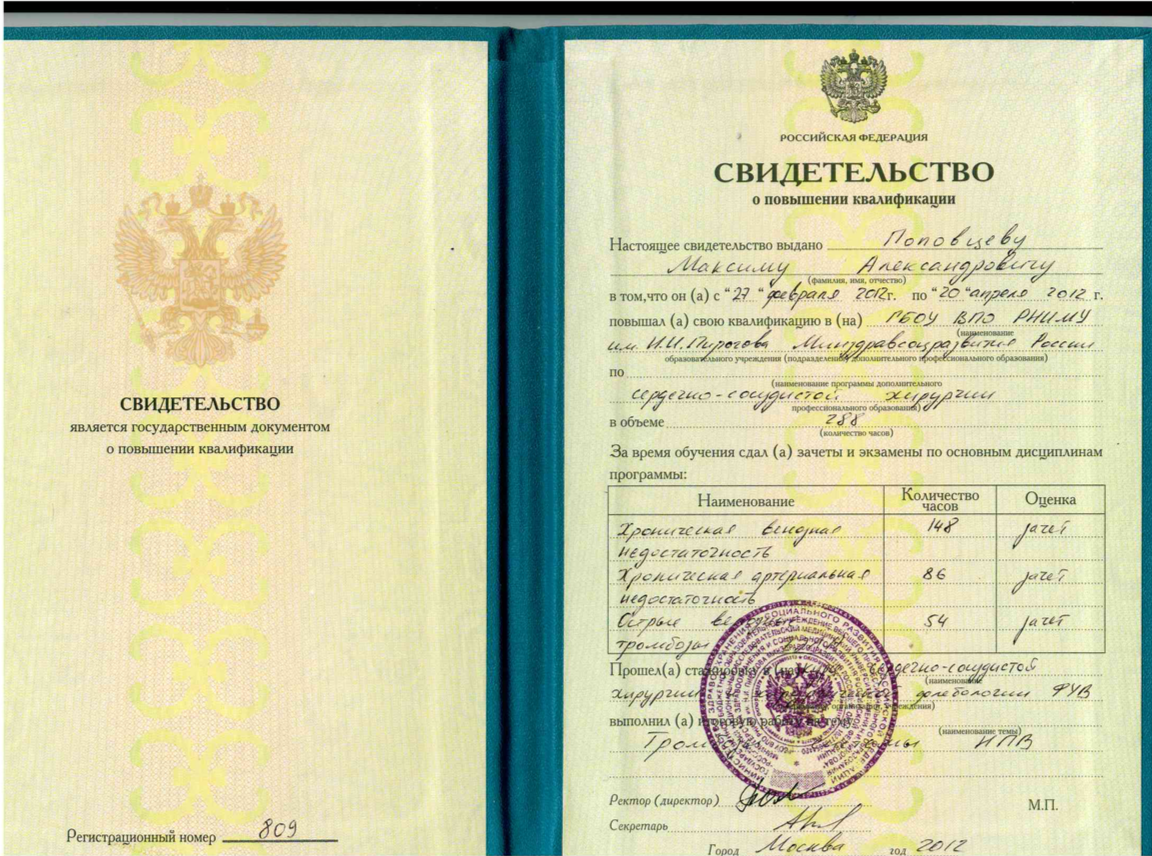 СВИДЕТЕЛЬСТВО
является государственным документом
о повышении квалификации
Регистрационный номер 809
РОССИЙСКАЯ ФЕДЕРАЦИЯ
СВИДЕТЕЛЬСТВО
о повышении квалификации
Настоящее свидетельство выдано Поповцеву
Максиму Александровичу
(фамилия, имя, отчество)
в том,что он (а) с "27" февраля 2012г. по "20" апреля 2012 г.
повышал (а) свою квалификацию в (на) ГБОУ ВПО РНИМУ
(наименование
им. Н.И.Пирогова Минздравсоцразвития России
образовательного учреждения (подразделения) дополнительного профессионального образования)
по
(наименование программы дополнительного
сердечно-сосудистой хирургии
профессионального образования)
в объеме 288
(количество часов)
За время обучения сдал (а) зачеты и экзамены по основным дисциплинам
программы:
Наименование Количество часов Оценка
Хроническая венозная 148 зачет
недостаточность
Хроническая артериальная 86 зачет
недостаточность
Острые 54 зачет
тромбозы
Прошел(а) стажировку в (на) сердечно-сосудистой
(наименование
хирургии флебологии ФУВ
организации, учреждения)
выполнил (а) итоговую работу на тему:
(наименование темы)
НПВ
Ректор (директор)
М.П.
Секретарь
Город Москва год 2012